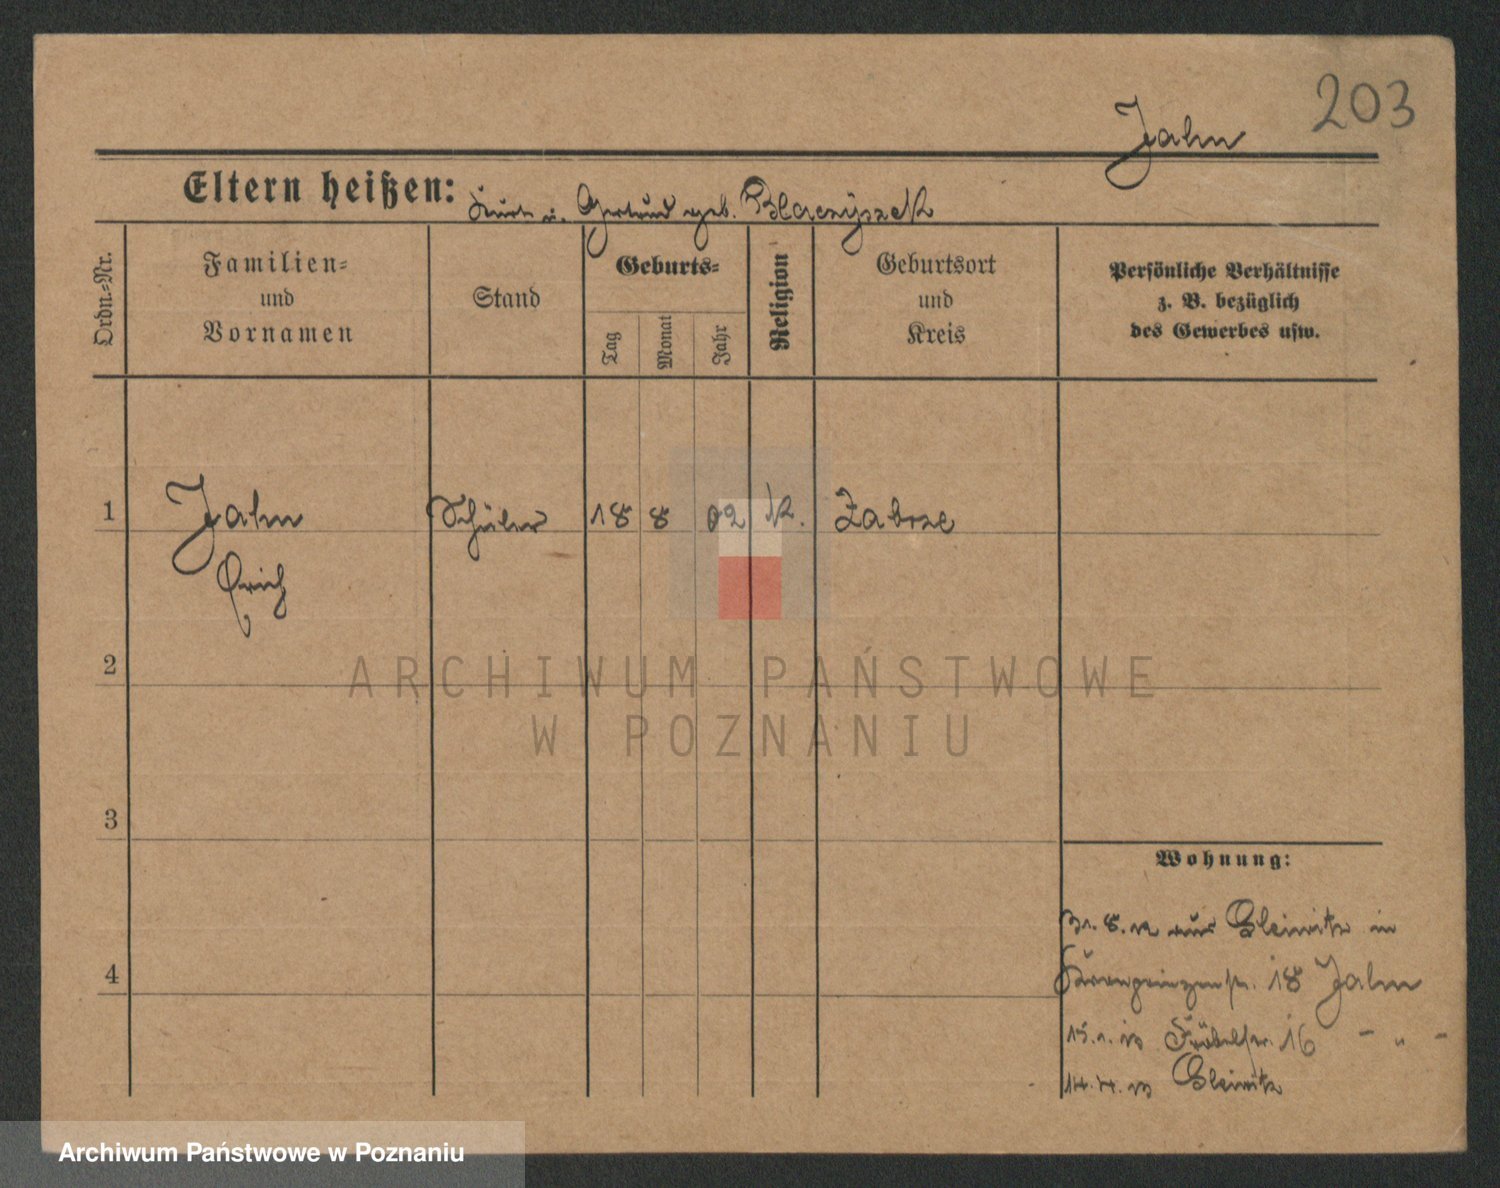 203
Jahn
Eltern heißen: Kurt u. Gertrud geb. Blaczyszek
Ordn.-Nr.
Familien-
und
Vornamen
Stand
Geburts-
Tag
Monat
Jahr
Religion
Geburtsort
und
Kreis
Persönliche Verhältnisse
z. B. bezüglich
des Gewerbes usw.
1 Jahn Schüler 18 8 02 K. Zabrze
Erich
2
ARCHIWUM PAŃSTWOWE
W POZNANIU
3
Wohnung:
31. 8. 12 aus Gleiwitz in
4
Kronprinzenstr. 18 Jahn
15. 1. 13 Fröbelstr. 16 – „ –
14. 4. 13 Gleiwitz
Archiwum Państwowe w Poznaniu